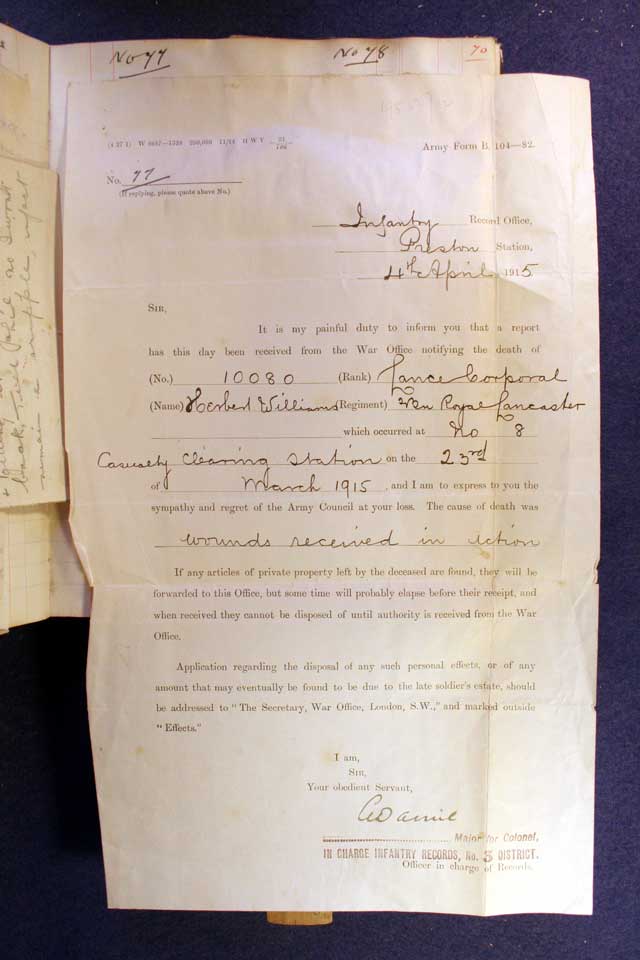 No 77 No 78 70
(4 27 1) W 6647—1528 200,000 11/14 H W V
Army Form B. 104—82.
No. 77
(If replying, please quote above No.)
Infantry Record Office,
Preston Station,
4th April 1915
SIR,
It is my painful duty to inform you that a report
has this day been received from the War Office notifying the death of
(No.) 10080 (Rank) Lance Corporal
(Name) Herbert Williams (Regiment) Royal Lancaster
which occurred at No 8
Casualty Clearing Station on the 23rd
of March 1915, and I am to express to you the
sympathy and regret of the Army Council at your loss. The cause of death was
wounds received in action
If any articles of private property left by the deceased are found, they will be
forwarded to this Office, but some time will probably elapse before their receipt, and
when received they cannot be disposed of until authority is received from the War
Office.
Application regarding the disposal of any such personal effects, or of any
amount that may eventually be found to be due to the late soldier's estate, should
be addressed to "The Secretary, War Office, London, S.W.," and marked outside
"Effects."
I am,
SIR,
Your obedient Servant,
Major for Colonel,
IN CHARGE INFANTRY RECORDS, No. 3 DISTRICT.
Officer in charge of Records.